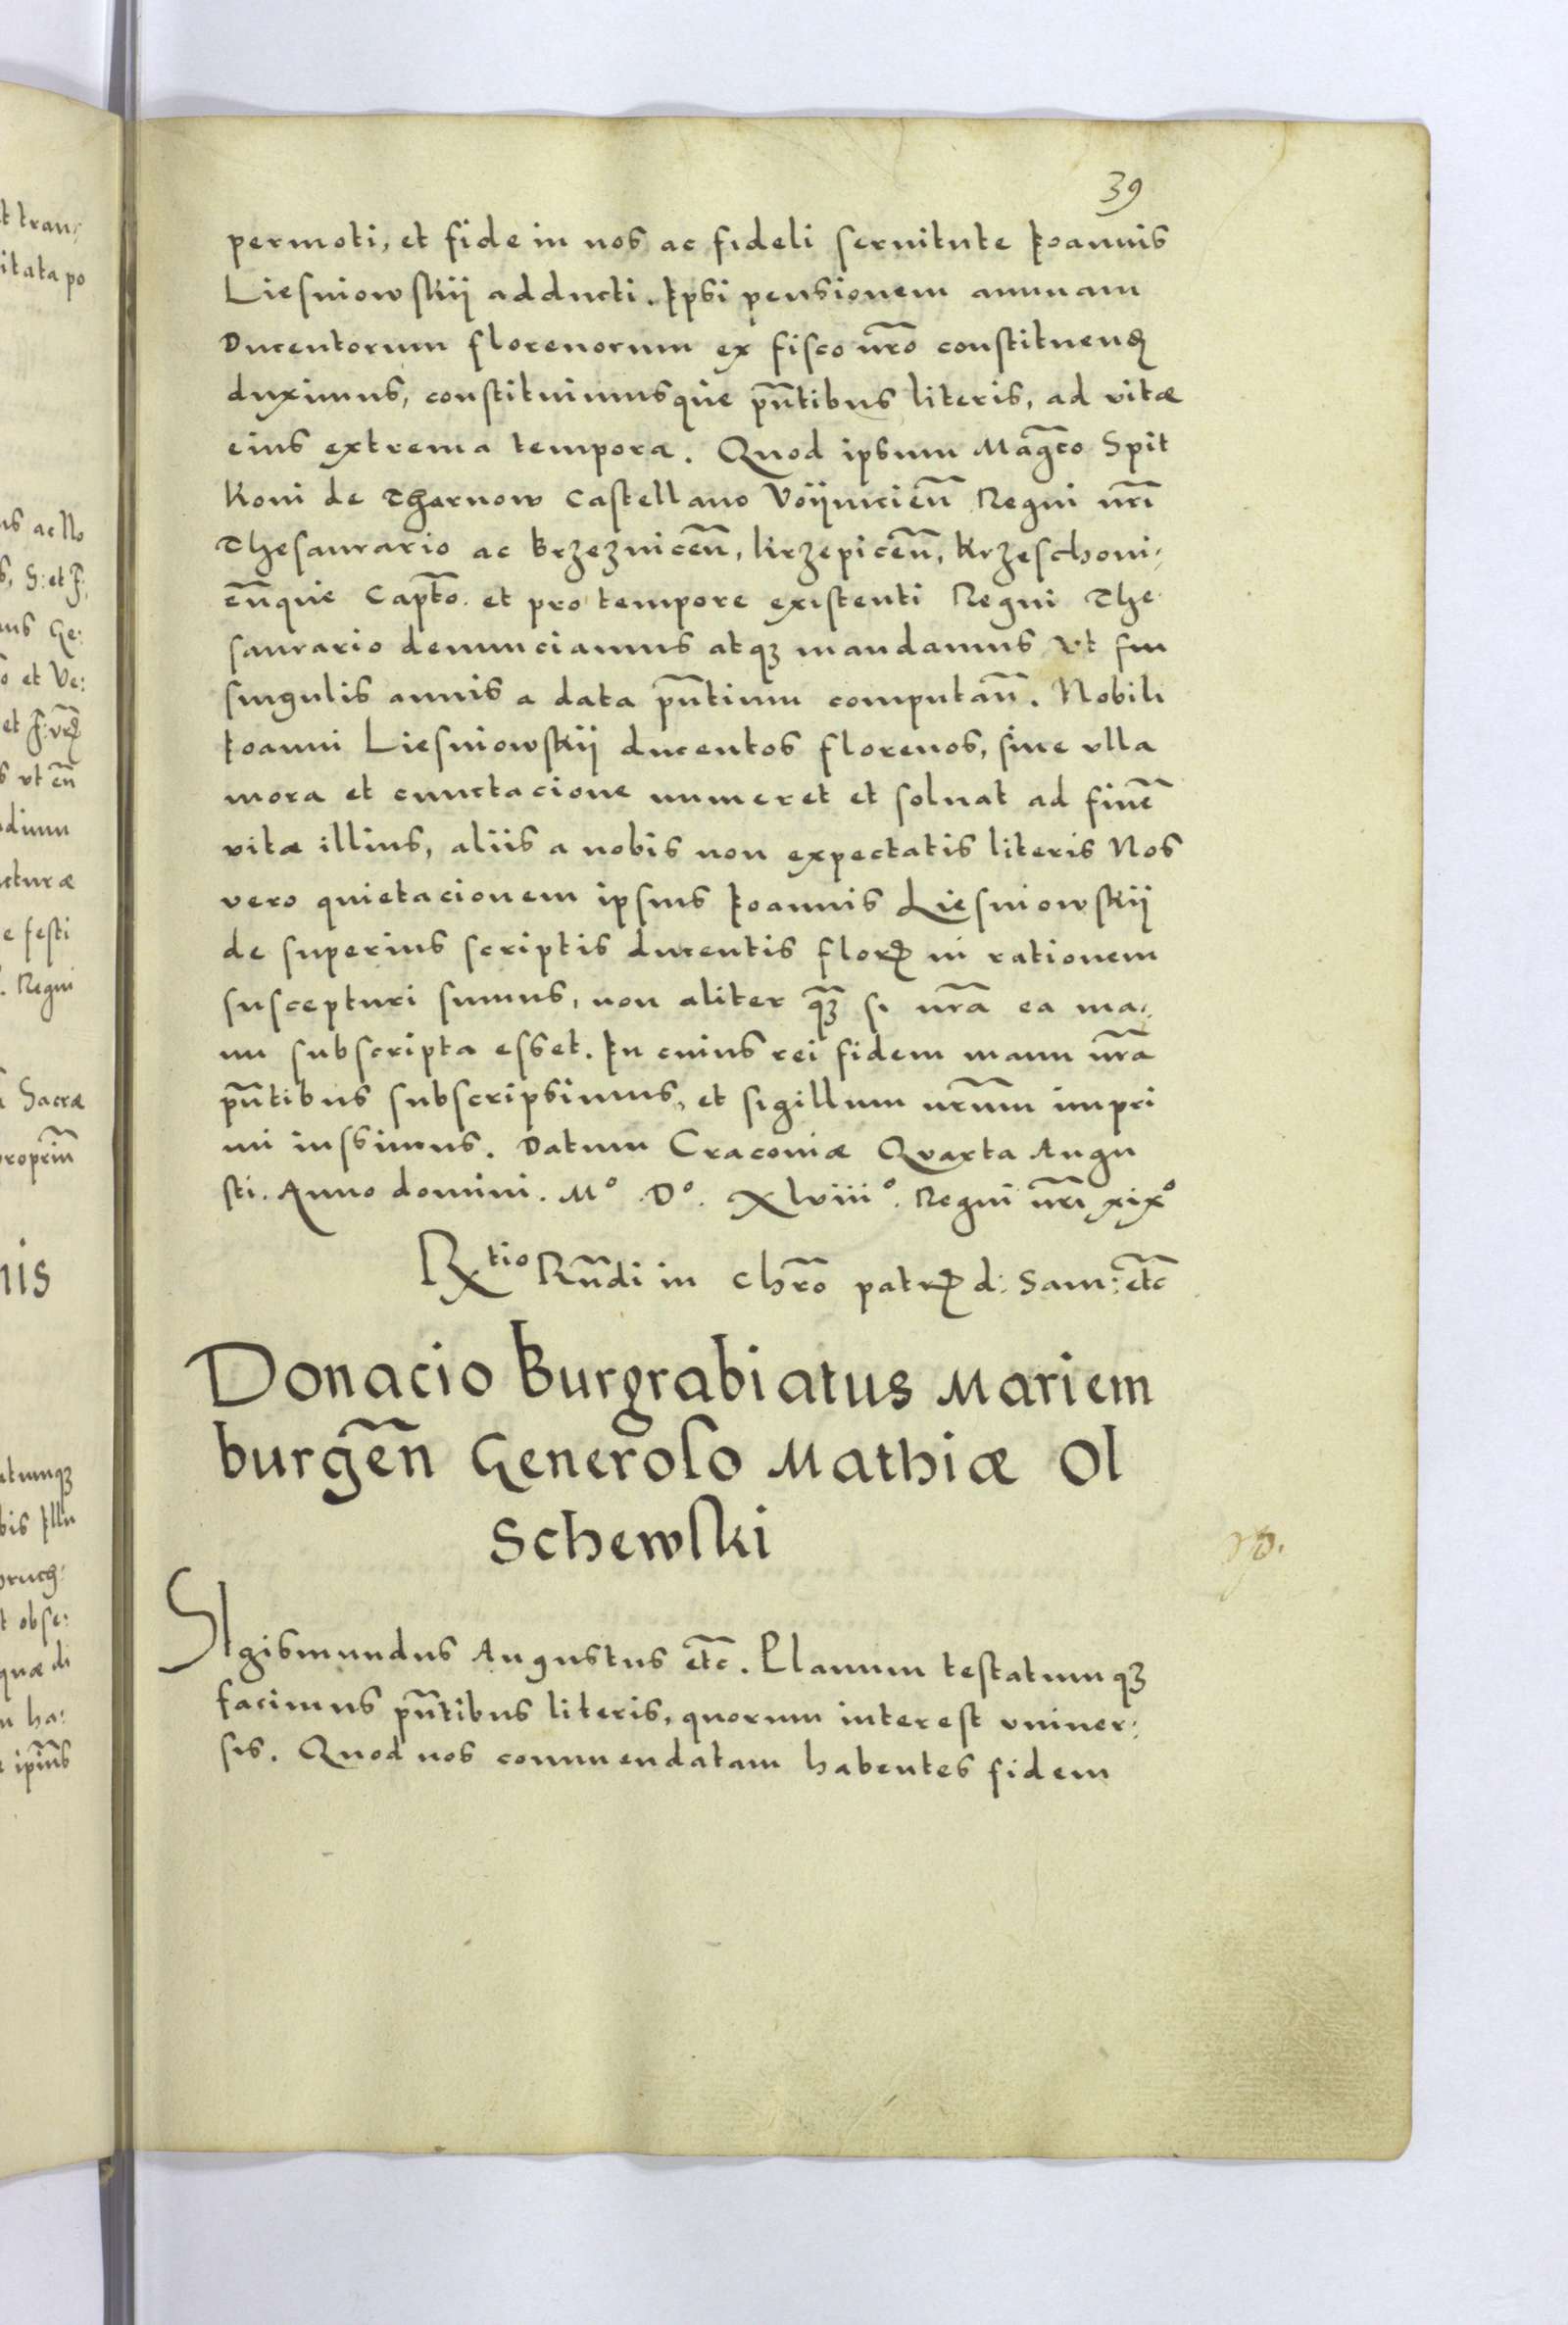 39
permoti, et fide in nos ac fideli seruitute Ioannis
Liesniowskij adducti. Ipsi pensionem annuam
Ducentorum florenorum ex fisco nr̃o constituend
duximus, constituimusque pñtibus literis, ad vitæ
eius extrema tempora. Quod ipsum Mag̃co Spit
koni de Tharnow Castellano Voijnicieñ Regni nr̃i
Thesaurario ac Brzezniceñ, krzepiceñ, krzeschoni,
eñque Capt̃o. et pro tempore existenti Regni The
saurario denunciamus atqꝫ mandamus vt sin
singulis annis a data pñtium computañ. Nobili
Ioanni Liesniowskij ducentos florenos, sine vlla
mora et cunctacione numeret et soluat ad finẽ
vitæ illius, aliis a nobis non expectatis literis Nos
vero quietacionem ipsius Ioannis Liesniowskij
de superius scriptis ducentis florꝭ in rationem
suscepturi sumus, non aliter qꝫ̃ si nr̃a ea ma,
nu subscripta esset. In cuius rei fidem manu nr̃a
pñtibus subscripsimus, et sigillum nr̃um impri
mi iussimus. Datum Cracoviæ Qvarta Augu
sti. Anno domini. Mº. Dº. Xlviiiº. Regni nr̃i xixº
Rtio Rñdi in Chr̃o patrꝭ d: Sam: etc̃
Donacio Burgrabiatus Mariem
burgeñ Generoso Mathiæ Ol
Schewski
SIgismundus Augustus etc̃. Planum testatumqꝫ
facimus pñtibus literis, quorum interest vniuer,
sis. Quod nos commendatam habentes fidem